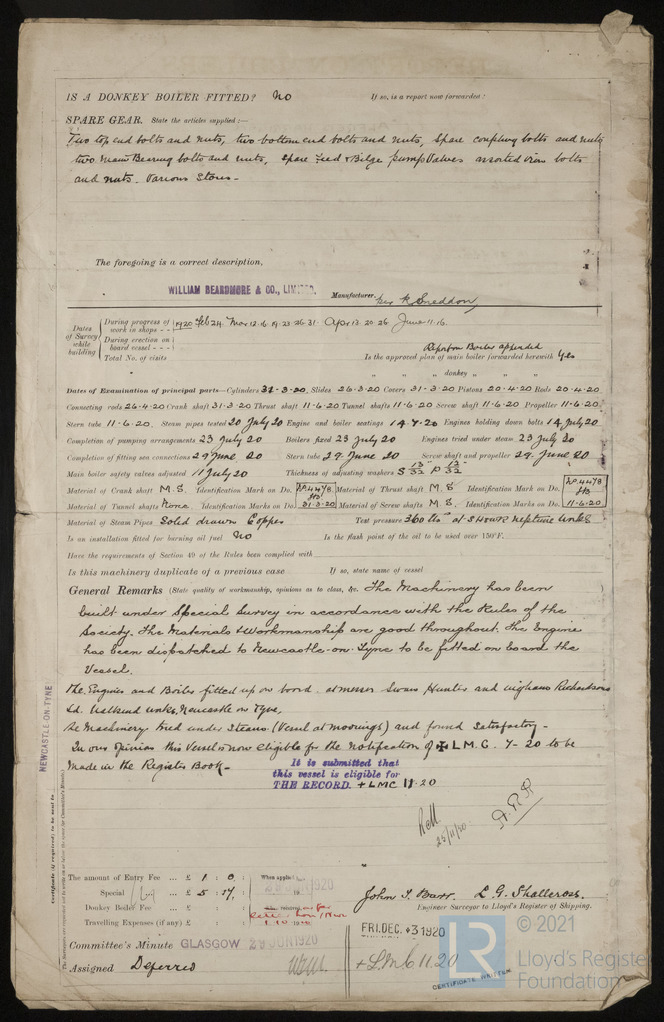 IS A DONKEY BOILER FITTED? No If so, is a report now forwarded?
SPARE GEAR. State the articles supplied:—
Two top end bolts and nuts, two bottom end bolts and nuts, Spare coupling bolts and nuts
two Main Bearing bolts and nuts, Spare Feed & Bilge pump Valves assorted iron bolts
and nuts. Various Stores -
The foregoing is a correct description,
WILLIAM BEARDMORE & CO., LIMITED. Manufacturer. per R Sneddon,
Dates of Survey while building
During progress of work in shops - - 1920 Feb 24 Mar 12. 16. 19. 23. 26. 31. Apr 13. 20. 26. June 11. 16.
During erection on board vessel - - -
Total No. of visits
Report on Boiler appended
Is the approved plan of main boiler forwarded herewith Yes
" " " donkey " " "
Dates of Examination of principal parts—Cylinders 31-3-20. Slides 26-3-20 Covers 31-3-20 Pistons 20-4-20 Rods 20-4-20
Connecting rods 26-4-20 Crank shaft 31-3-20 Thrust shaft 11-6-20 Tunnel shafts 11-6-20 Screw shaft 11-6-20 Propeller 11-6-20
Stern tube 11-6-20. Steam pipes tested 20 July 20 Engine and boiler seatings 14-7-20 Engines holding down bolts 14 July 20
Completion of pumping arrangements 23 July 20 Boilers fixed 23 July 20 Engines tried under steam 23 July 20
Completion of fitting sea connections 29 June 20 Stern tube 29. June 20 Screw shaft and propeller 29. June 20
Main boiler safety valves adjusted 11 July 20 Thickness of adjusting washers S 13/32 P 13/32
Material of Crank shaft M.S. Identification Mark on Do. Material of Thrust shaft M.S. Identification Mark on Do.
Material of Tunnel shafts None Identification Marks on Do. 31-3-20 Material of Screw shafts M.S. Identification Marks on Do. 11-6-20
Material of Steam Pipes Solid drawn Copper Test pressure 360 lbs
Is an installation fitted for burning oil fuel No Is the flash point of the oil to be used over 150°F.
Have the requirements of Section 49 of the Rules been complied with
Is this machinery duplicate of a previous case If so, state name of vessel
General Remarks (State quality of workmanship, opinions as to class, &c. The Machinery has been
built under Special Survey in accordance with the Rules of the
Society. The Materials & Workmanship are good throughout. The Engine
has been dispatched to Newcastle-on-Tyne to be fitted on board the
Vessel.
The Engines and Boiler fitted up on board at messrs Swan Hunter and Wigham Richardsons
Ld. Newcastle on Tyne,
The Machinery tried under Steam (Vessel at moorings) and found Satisfactory -
In our Opinion this Vessel is now eligible for the notification of ✠ L.M.C. 7-20 to be
Made in the Register Book -
It is submitted that
this vessel is eligible for
THE RECORD. + LMC 11.20
25/11/20
NEWCASTLE-ON-TYNE
The amount of Entry Fee ... £ 1 : 0 : When applied
Special ... £ 5 : 17 :
Donkey Boiler Fee ... £ : :
Travelling Expenses (if any) £ : :
John T. Barr. L. G. Shallcross.
Engineer Surveyor to Lloyd's Register of Shipping.
Committee's Minute GLASGOW 29 JUN 1920
FRI. DEC. 3 1920
Assigned Deferred
+ LMC 11.20
CERTIFICATE WRITTEN
LR © 2021
Lloyd's Register
Foundation